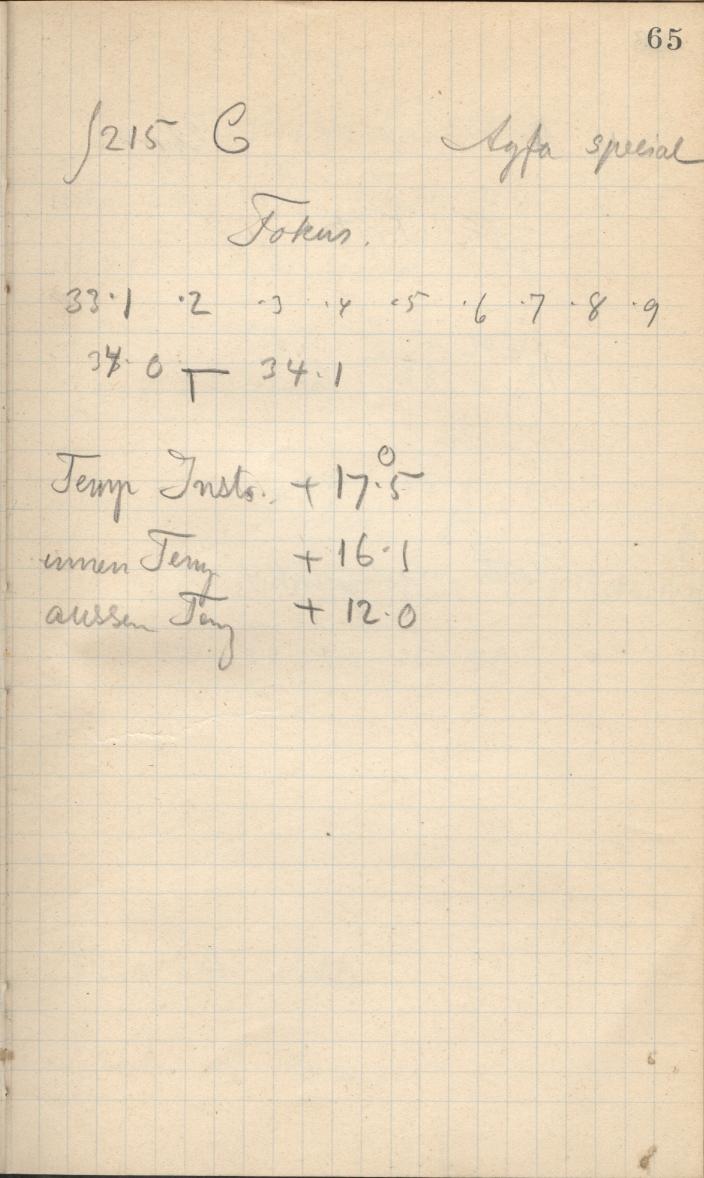 65
∫215 C Agfa special
Fokus.
33.1 .2 .3 .4 .5 .6 .7 .8 .9
34.0 ┬ 34.1
Temp Instr. + 17°.5
innen Temp + 16.1
aussen Temp + 12.0